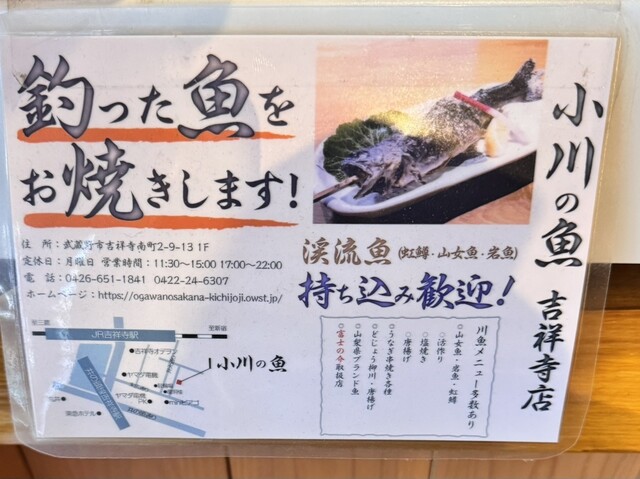 釣った魚を
お焼きします!
小川の魚 吉祥寺店
住 所：武蔵野市吉祥寺南町2-9-13 1F
定休日：月曜日 営業時間：11:30～15:00 17:00～22:00
電 話：0426-651-1841 0422-24-6307
ホームページ：https://ogawanosakana-kichijoji.owst.jp/
渓流魚(虹鱒・山女魚・岩魚)
持ち込み歓迎!
川魚メニュー多数あり
○山女魚・岩魚・虹鱒
○活作り
○塩焼き
○唐揚げ
○うなぎ串焼き各種
○どじょう柳川・唐揚げ
○山梨県ブランド魚
○富士の介取扱店
至三鷹
JR吉祥寺駅
至新宿
●吉祥寺オデヲン
小川の魚
ヤマダ電機
ヤマダ電機
PK●
東急ホテル●